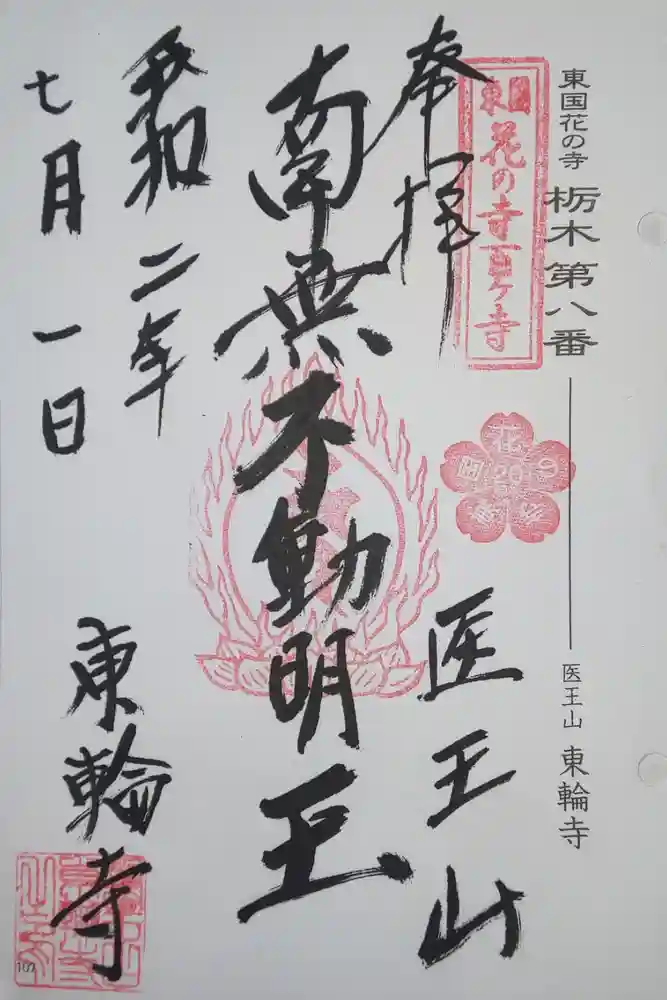 東国花の寺 栃木第八番
医王山 東輪寺
東国
花の寺百ヶ寺
花の
20
奉拝
医王山
南無不動明王
令和二年
七月一日
東輪寺
107